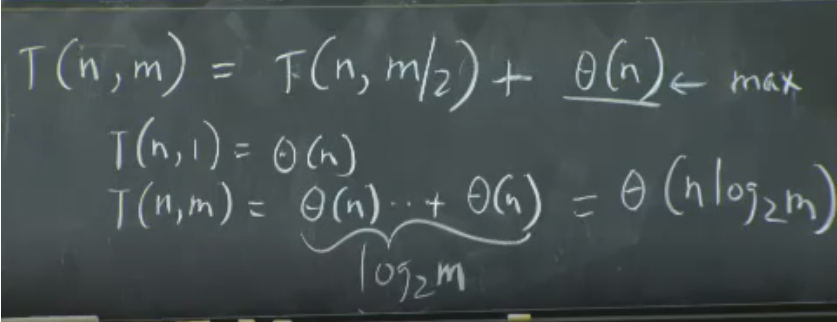 T(n, m) = T(n, m/2) + θ(n) ← max
T(n, 1) = θ(n)
T(n, m) = θ(n) ·· + θ(n) = θ(n log₂m)
log₂m